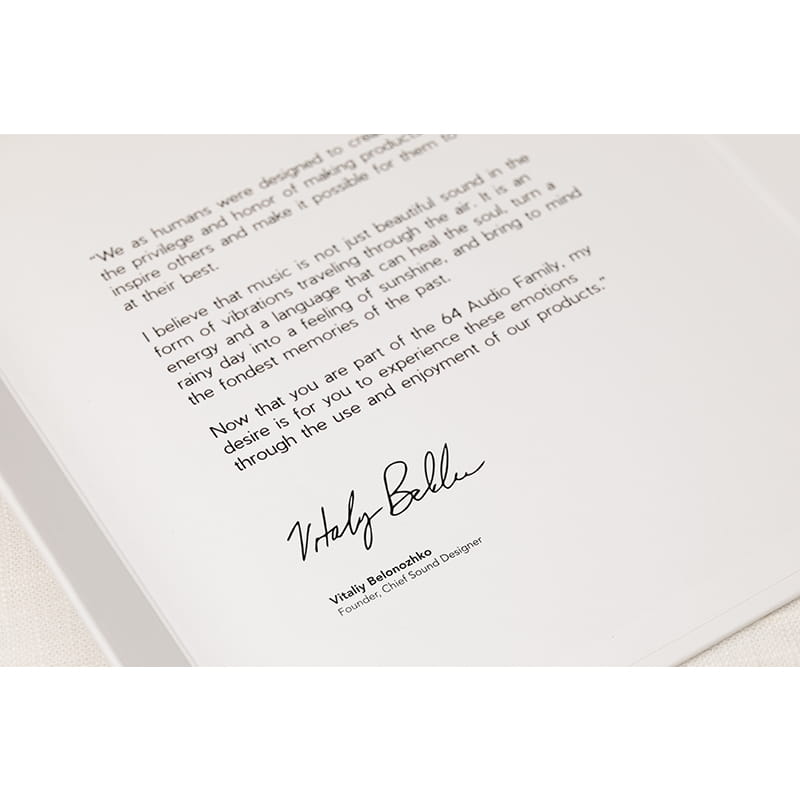 “We as humans were designed to
the privilege and honor of making
inspire others and make it possible for them to
at their best.
I believe that music is not just beautiful sound in the
form of vibrations traveling through the air. It is an
energy and a language that can heal the soul, turn a
rainy day into a feeling of sunshine, and bring to mind
the fondest memories of the past.
Now that you are part of the 64 Audio Family, my
desire is for you to experience these emotions
through the use and enjoyment of our products.”
Vitaly
Vitaliy Belonozhko
Founder, Chief Sound Designer